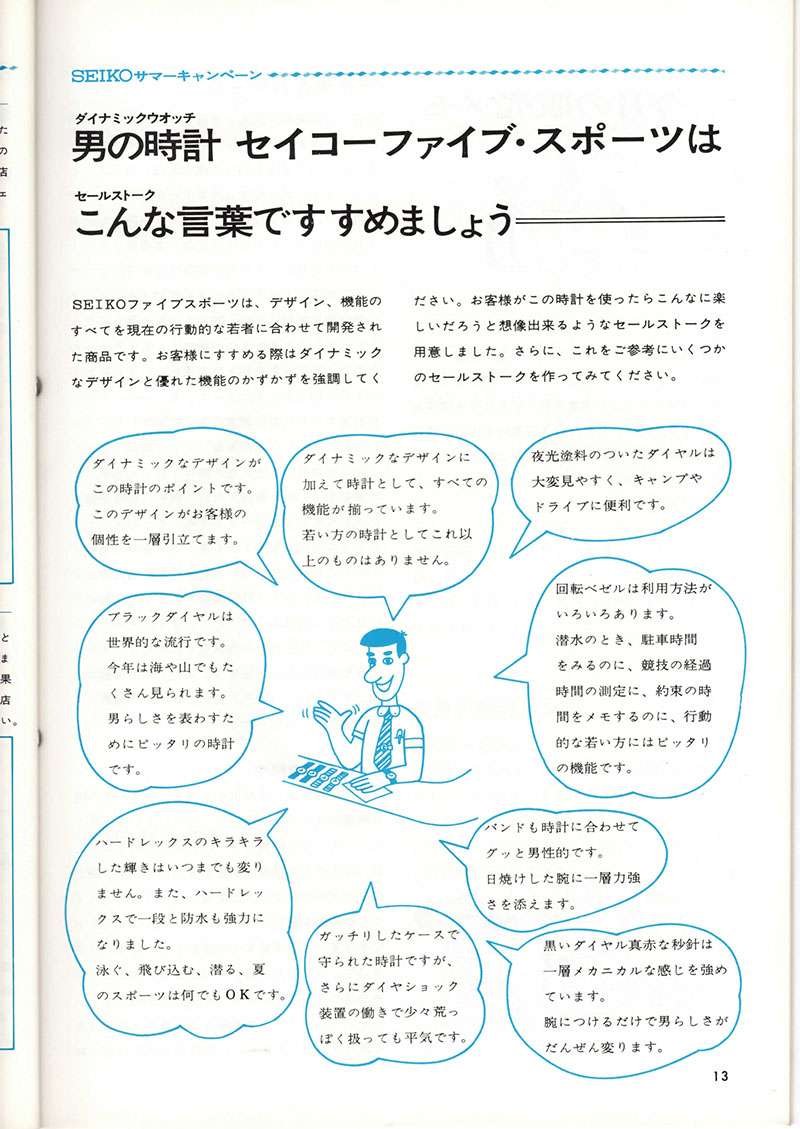 SEIKOサマーキャンペーン
ダイナミックウオッチ
男の時計 セイコーファイブ・スポーツは
セールストーク
こんな言葉ですすめましょう
SEIKOファイブスポーツは、デザイン、機能の
すべてを現在の行動的な若者に合わせて開発され
た商品です。お客様にすすめる際はダイナミック
なデザインと優れた機能のかずかずを強調してく
ださい。お客様がこの時計を使ったらこんなに楽
しいだろうと想像出来るようなセールストークを
用意しました。さらに、これをご参考にいくつか
のセールストークを作ってみてください。
ダイナミックなデザインが
この時計のポイントです。
このデザインがお客様の
個性を一層引立てます。
ダイナミックなデザインに
加えて時計として、すべての
機能が揃っています。
若い方の時計としてこれ以
上のものはありません。
夜光塗料のついたダイヤルは
大変見やすく、キャンプや
ドライブに便利です。
ブラックダイヤルは
世界的な流行です。
今年は海や山でもた
くさん見られます。
男らしさを表わすた
めにピッタリの時計
です。
回転ベゼルは利用方法が
いろいろあります。
潜水のとき、駐車時間
をみるのに、競技の経過
時間の測定に、約束の時
間をメモするのに、行動
的な若い方にはピッタリ
の機能です。
ハードレックスのキラキラ
した輝きはいつまでも変り
ません。また、ハードレッ
クスで一段と防水も強力に
なりました。
泳ぐ、飛び込む、潜る、夏
のスポーツは何でもOKです。
バンドも時計に合わせて
グッと男性的です。
日焼けした腕に一層力強
さを添えます。
ガッチリしたケースで
守られた時計ですが、
さらにダイヤショック
装置の働きで少々荒っ
ぽく扱っても平気です。
黒いダイヤル真赤な秒針は
一層メカニカルな感じを強め
ています。
腕につけるだけで男らしさが
だんぜん変ります。
13
た
の
店
ェ
と
ま
果
店
い。